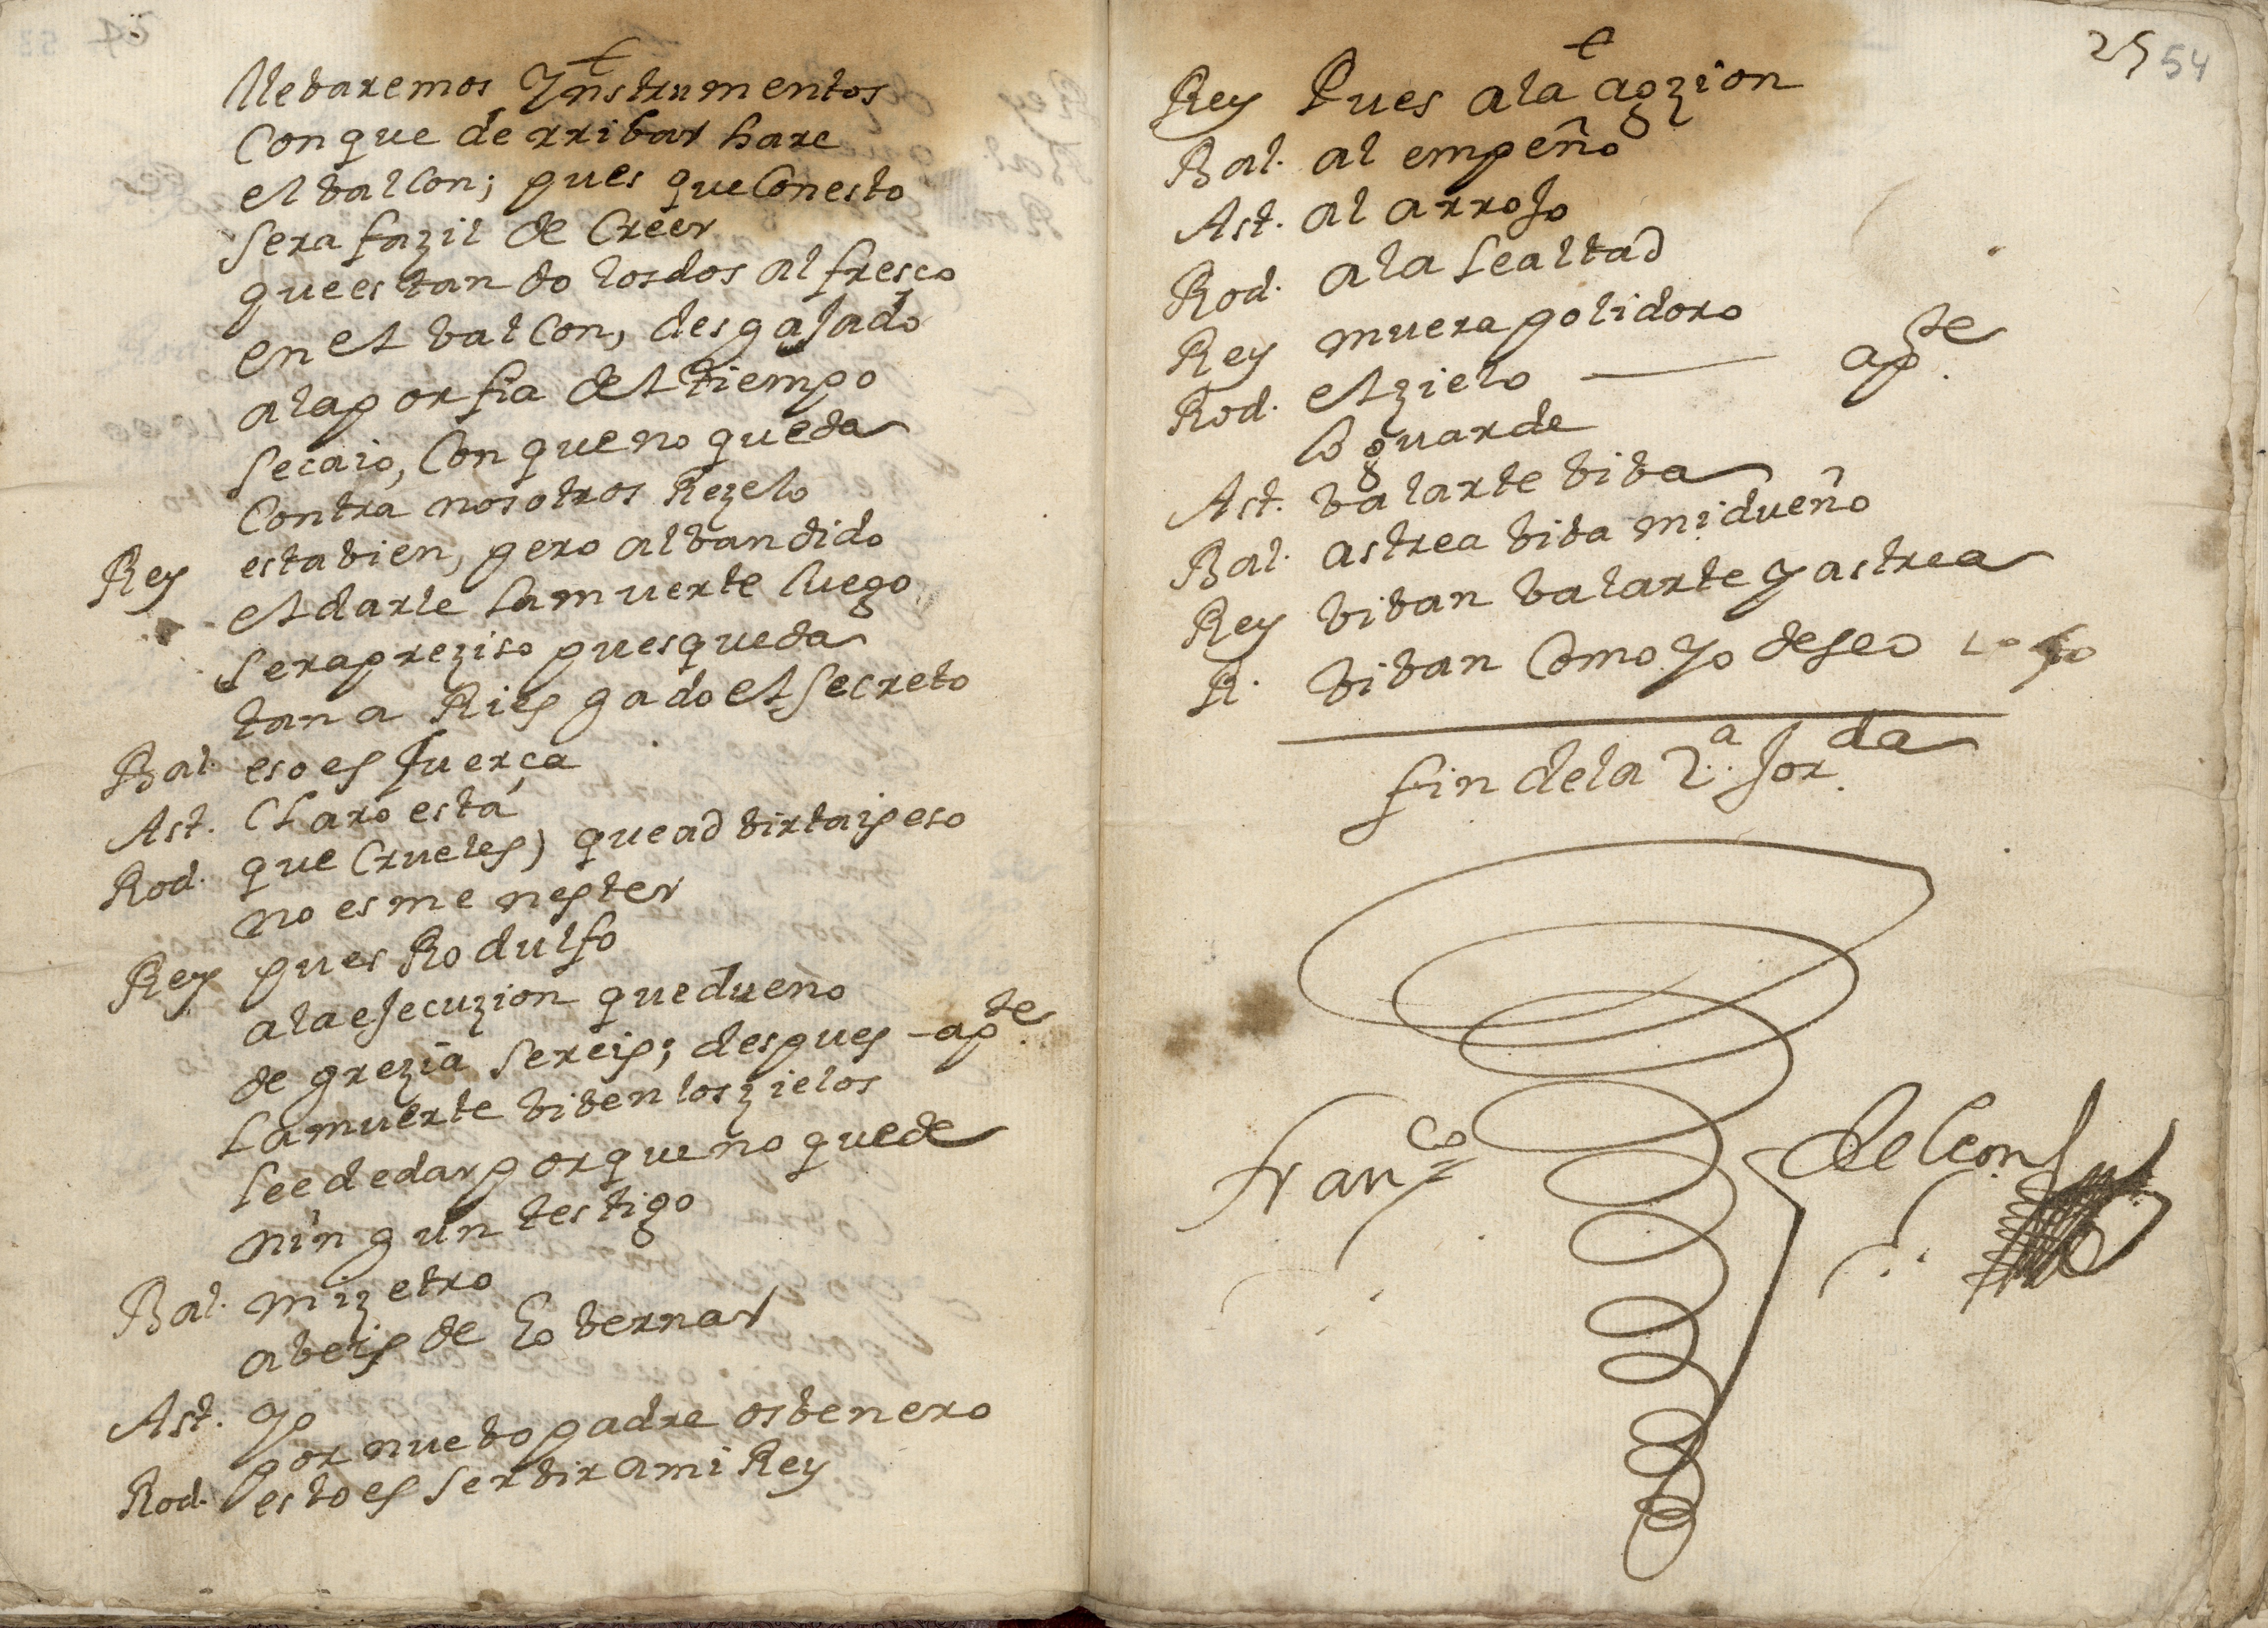 llebaremos Ynstrumentos
Con que derribar hare
el balcon; pues que Con esto
sera fazil de Creer
que estando los dos al fresco
en el balcon, desgajado
a la porfia del tiempo
se caio, Con que no queda
Contra nosotros Rezelo
Rey esta bien, pero al bandido
el darle la muerte luego
sera preziso pues queda
tan a Riesgado el secreto
Bal. eso es fuerça
Ast. Claro esta
Rod. que Crueles) que adbirtais eso
no es menester
Rey pues Rodulfo
a la ejecuzion que dueño
de grezia sereis; despues - apte.
la muerte biben los zielos
le e de dar porque no quede
ningun testigo
Bal. mi zetro
abeis de Gobernar
Ast. Yo
por nuebo padre os benero
Rod. esto es serbir a mi Rey
25 54
Rey Pues a la agzion
Bal. al empeño
Ast. al arrojo
Rod. a la lealtad
Rey muera polidoro
Rod. el zielo — apte.
lo guarde
Ast. balarte biba
Bal. astrea biba mi dueño
Rey biban balarte y astrea
R. biban Como yo deseo
fin de la 2ª. Jorda.
Franco de Leon